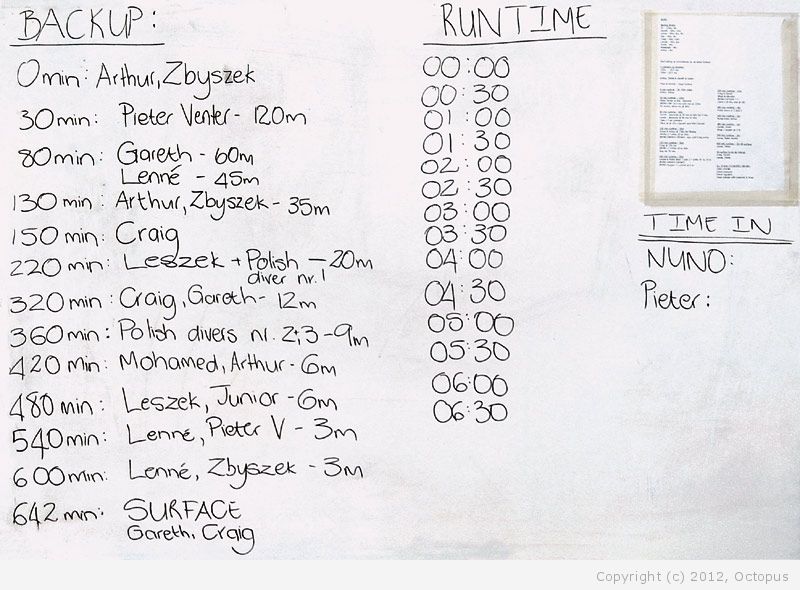 BACKUP:
0min: Arthur, Zbyszek
30min: Pieter Venter - 120m
80min: Gareth - 60m
Lenné - 45m
130min: Arthur, Zbyszek - 35m
150min: Craig
220min: Leszek + Polish - 20m
diver nr. 1
320min: Craig, Gareth - 12m
360min: Polish divers nr. 2+3 - 9m
420min: Mohamed, Arthur - 6m
480min: Leszek, Junior - 6m
540min: Lenné, Pieter V - 3m
600min: Lenné, Zbyszek - 3m
642min: SURFACE
Gareth, Craig
RUNTIME
00:00
00:30
01:00
01:30
02:00
02:30
03:00
03:30
04:00
04:30
05:00
05:30
06:00
06:30
TIME IN
NUNO:
Pieter:
Copyright (c) 2012, Octopus